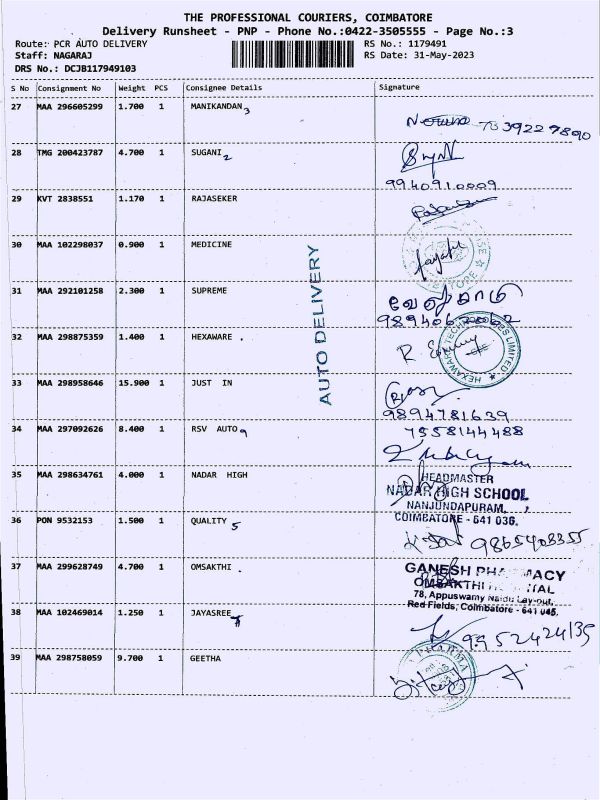 THE PROFESSIONAL COURIERS, COIMBATORE
Delivery Runsheet - PNP - Phone No.:0422-3505555 - Page No.:3
Route: PCR AUTO DELIVERY RS No.: 1179491
Staff: NAGARAJ RS Date: 31-May-2023
DRS No.: DCJB117949103
S No Consignment No Weight PCS Consignee Details Signature
27 MAA 296605299 1.700 1 MANIKANDAN 3
28 TMG 200423787 4.700 1 SUGANI 2
9940910009
29 KVT 2838551 1.170 1 RAJASEKER
30 MAA 102298037 0.900 1 MEDICINE
AUTO DELIVERY
31 MAA 292101258 2.300 1 SUPREME
32 MAA 298875359 1.400 1 HEXAWARE .
HEXAWARE TECHNOLOGIES LIMITED
33 MAA 298958646 15.900 1 JUST IN
9894781639
34 MAA 297092626 8.400 1 RSV AUTO 9
7558144488
35 MAA 298634761 4.000 1 NADAR HIGH
HEADMASTER
NADAR HIGH SCHOOL
NANJUNDAPURAM,
COIMBATORE - 641 036.
36 PON 9532153 1.500 1 QUALITY 5
9865403355
37 MAA 299628749 4.700 1 OMSAKTHI .
GANESH PHARMACY
OMSAKTHI HOSPITAL
78, Appuswamy Naidu Lay-out,
Red Fields, Coimbatore - 641 045.
38 MAA 102469014 1.250 1 JAYASREE
9952424135
39 MAA 298758059 9.700 1 GEETHA
PHARMA